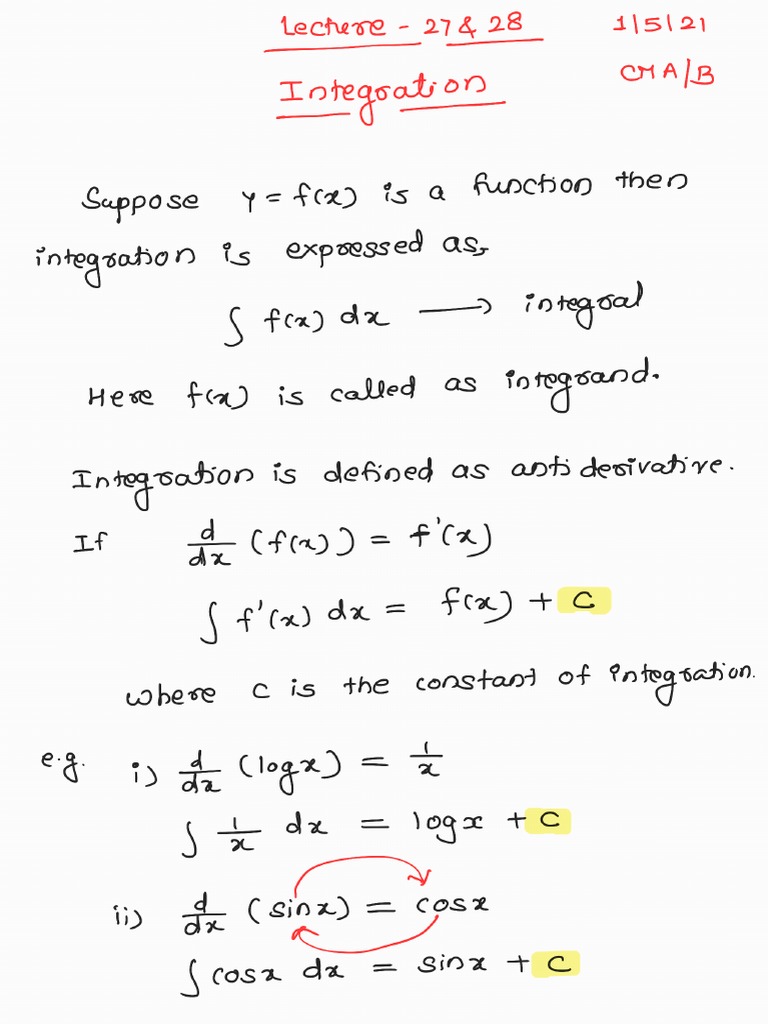 Lecture - 27 & 28 1/5/21
Integration CMA/B
Suppose y = f(x) is a function then
integration is expressed as,
∫ f(x) dx ⟶ integral
Here f(x) is called as integrand.
Integration is defined as anti derivative.
If d/dx (f(x)) = f'(x)
∫ f'(x) dx = f(x) + C
where C is the constant of integration.
e.g. i) d/dx (logx) = 1/x
∫ 1/x dx = logx + C
ii) d/dx (sinx) = cosx
∫ cosx dx = sinx + C